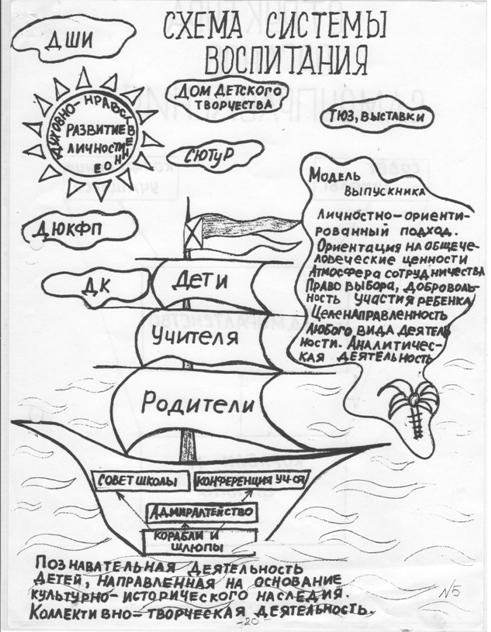 СХЕМА СИСТЕМЫ
ВОСПИТАНИЯ
ДШИ
ДУХОВНО-НРАВСТВЕННОЕ
РАЗВИТИЕ
ЛИЧНОСТИ
ДОМ ДЕТСКОГО
ТВОРЧЕСТВА
ТЮЗ, ВЫСТАВКИ
СЮТУР
ДЮКФП
ДК
МОДЕЛЬ
ВЫПУСКНИКА
ЛИЧНОСТНО-ОРИЕНТИ-
РОВАННЫЙ ПОДХОД.
ОРИЕНТАЦИЯ НА ОБЩЕЧЕ-
ЛОВЕЧЕСКИЕ ЦЕННОСТИ
АТМОСФЕРА СОТРУДНИЧЕСТВА
ПРАВО ВЫБОРА, ДОБРОВОЛЬ-
НОСТЬ УЧАСТИЯ РЕБЕНКА
ЦЕЛЕНАПРАВЛЕННОСТЬ
ЛЮБОГО ВИДА ДЕЯТЕЛЬ
НОСТИ. АНАЛИТИЧЕС-
КАЯ ДЕЯТЕЛЬНОСТЬ
ДЕТИ
УЧИТЕЛЯ
РОДИТЕЛИ
СОВЕТ ШКОЛЫ
КОНФЕРЕНЦИЯ УЧ-СЯ
АДМИРАЛТЕЙСТВО
КОРАБЛИ И
ШЛЮПЫ
ПОЗНАВАТЕЛЬНАЯ ДЕЯТЕЛЬНОСТЬ
ДЕТЕЙ, НАПРАВЛЕННАЯ НА ОСНОВАНИЕ
КУЛЬТУРНО-ИСТОРИЧЕСКОГО НАСЛЕДИЯ.
КОЛЛЕКТИВНО-ТВОРЧЕСКАЯ ДЕЯТЕЛЬНОСТЬ.
-20-
№5